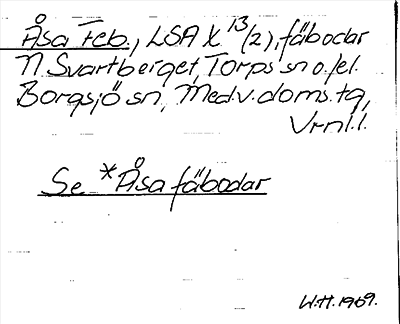 Åsa Feb., LSA X 13 (2), fäbodar
N Svartberget, Torps sn o. fel.
Borgsjö sn, Med.v. doms.tg,
Vrnl.l.
Se *Åsa fäbodar
W.H. 1969.